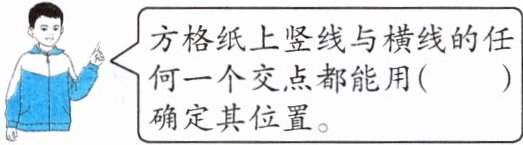 方格纸上竖线与横线的任
何一个交点都能用(　　)
确定其位置。